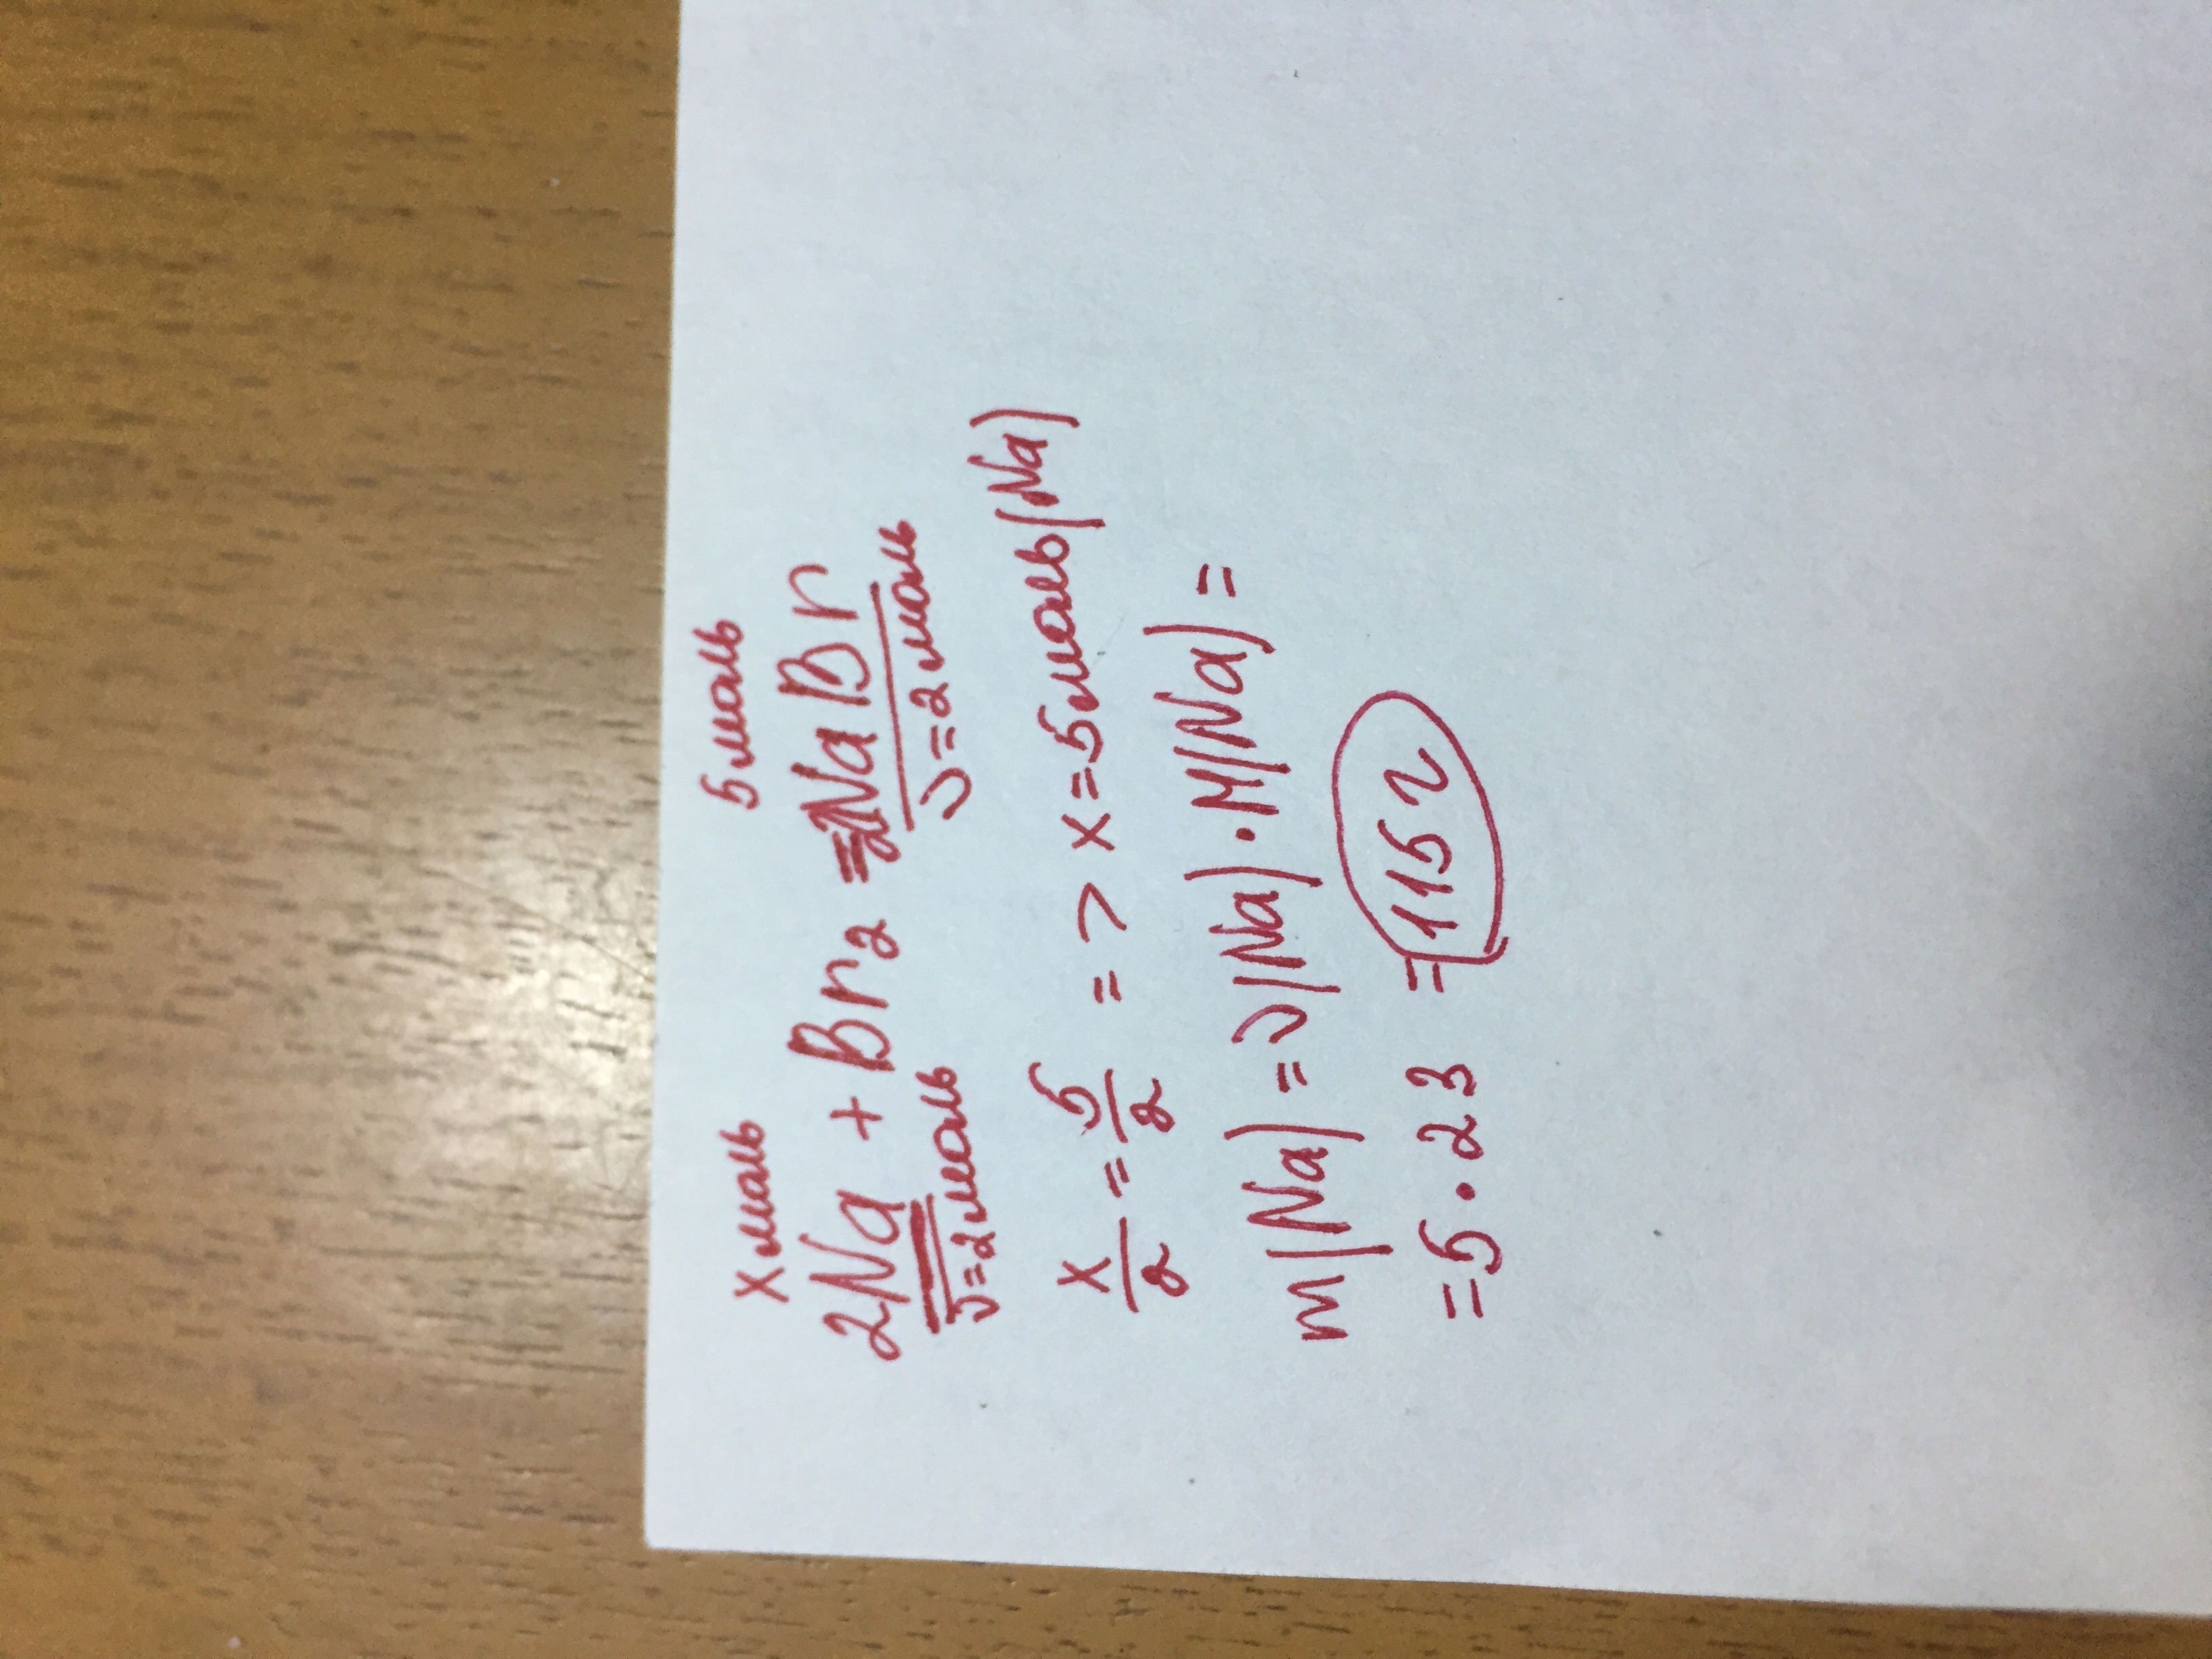 x моль 5 моль
2Na + Br2 = 2NaBr
ν=2моль ν=2моль
x/2 = 5/2 => x=5моль(Na)
m(Na) = ν(Na)·M(Na) =
=5·23 = 115 г